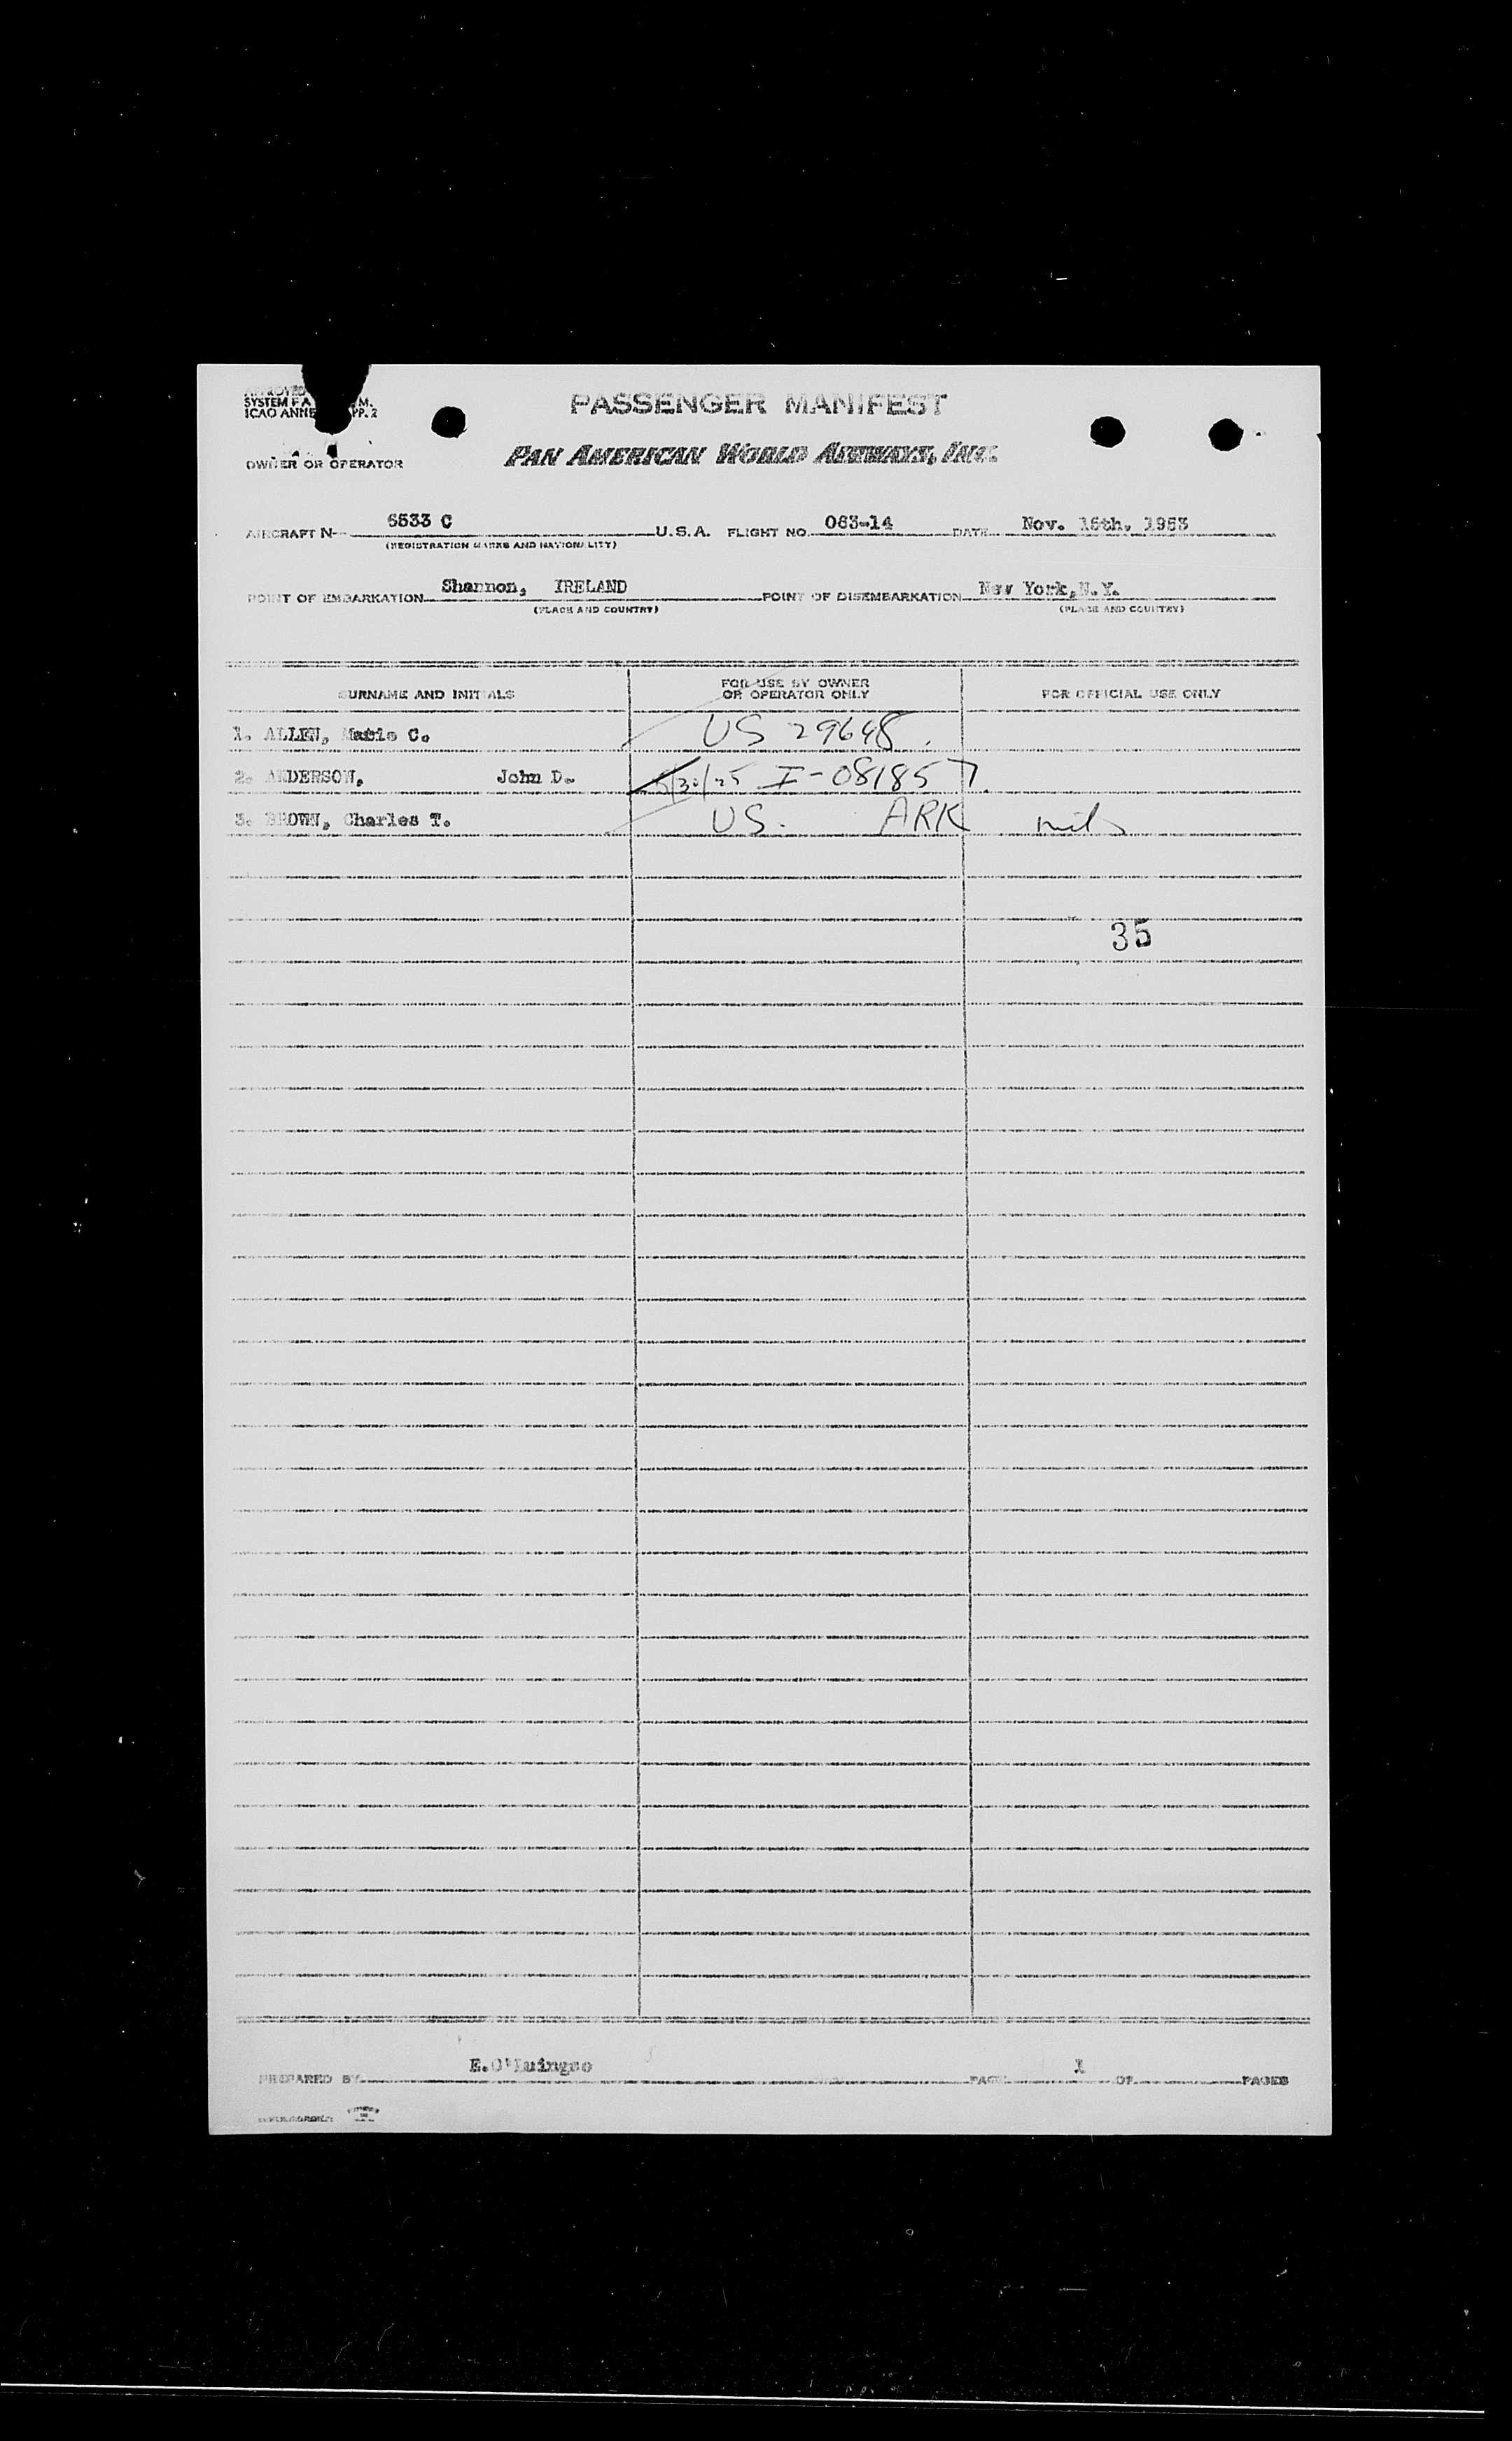 APPROVED
SYSTEM F A M.
ICAO ANNE PP. 2
PASSENGER MANIFEST
OWNER OR OPERATOR PAN AMERICAN WORLD AIRWAYS, INC.
AIRCRAFT N- 6533 C U.S.A. FLIGHT NO. 063-14 DATE Nov. 16th, 1953
(REGISTRATION MARKS AND NATIONALITY)
POINT OF EMBARKATION Shannon, IRELAND POINT OF DISEMBARKATION New York, N.Y.
(PLACE AND COUNTRY) (PLACE AND COUNTRY)
SURNAME AND INITIALS FOR USE BY OWNER OR OPERATOR ONLY FOR OFFICIAL USE ONLY
1. ALLEN, C. US 29648.
2. ANDERSON, John D. I-081857
3. BROWN, Charles T. US. ARK
35
PREPARED BY PAGE 1 OF PAGES